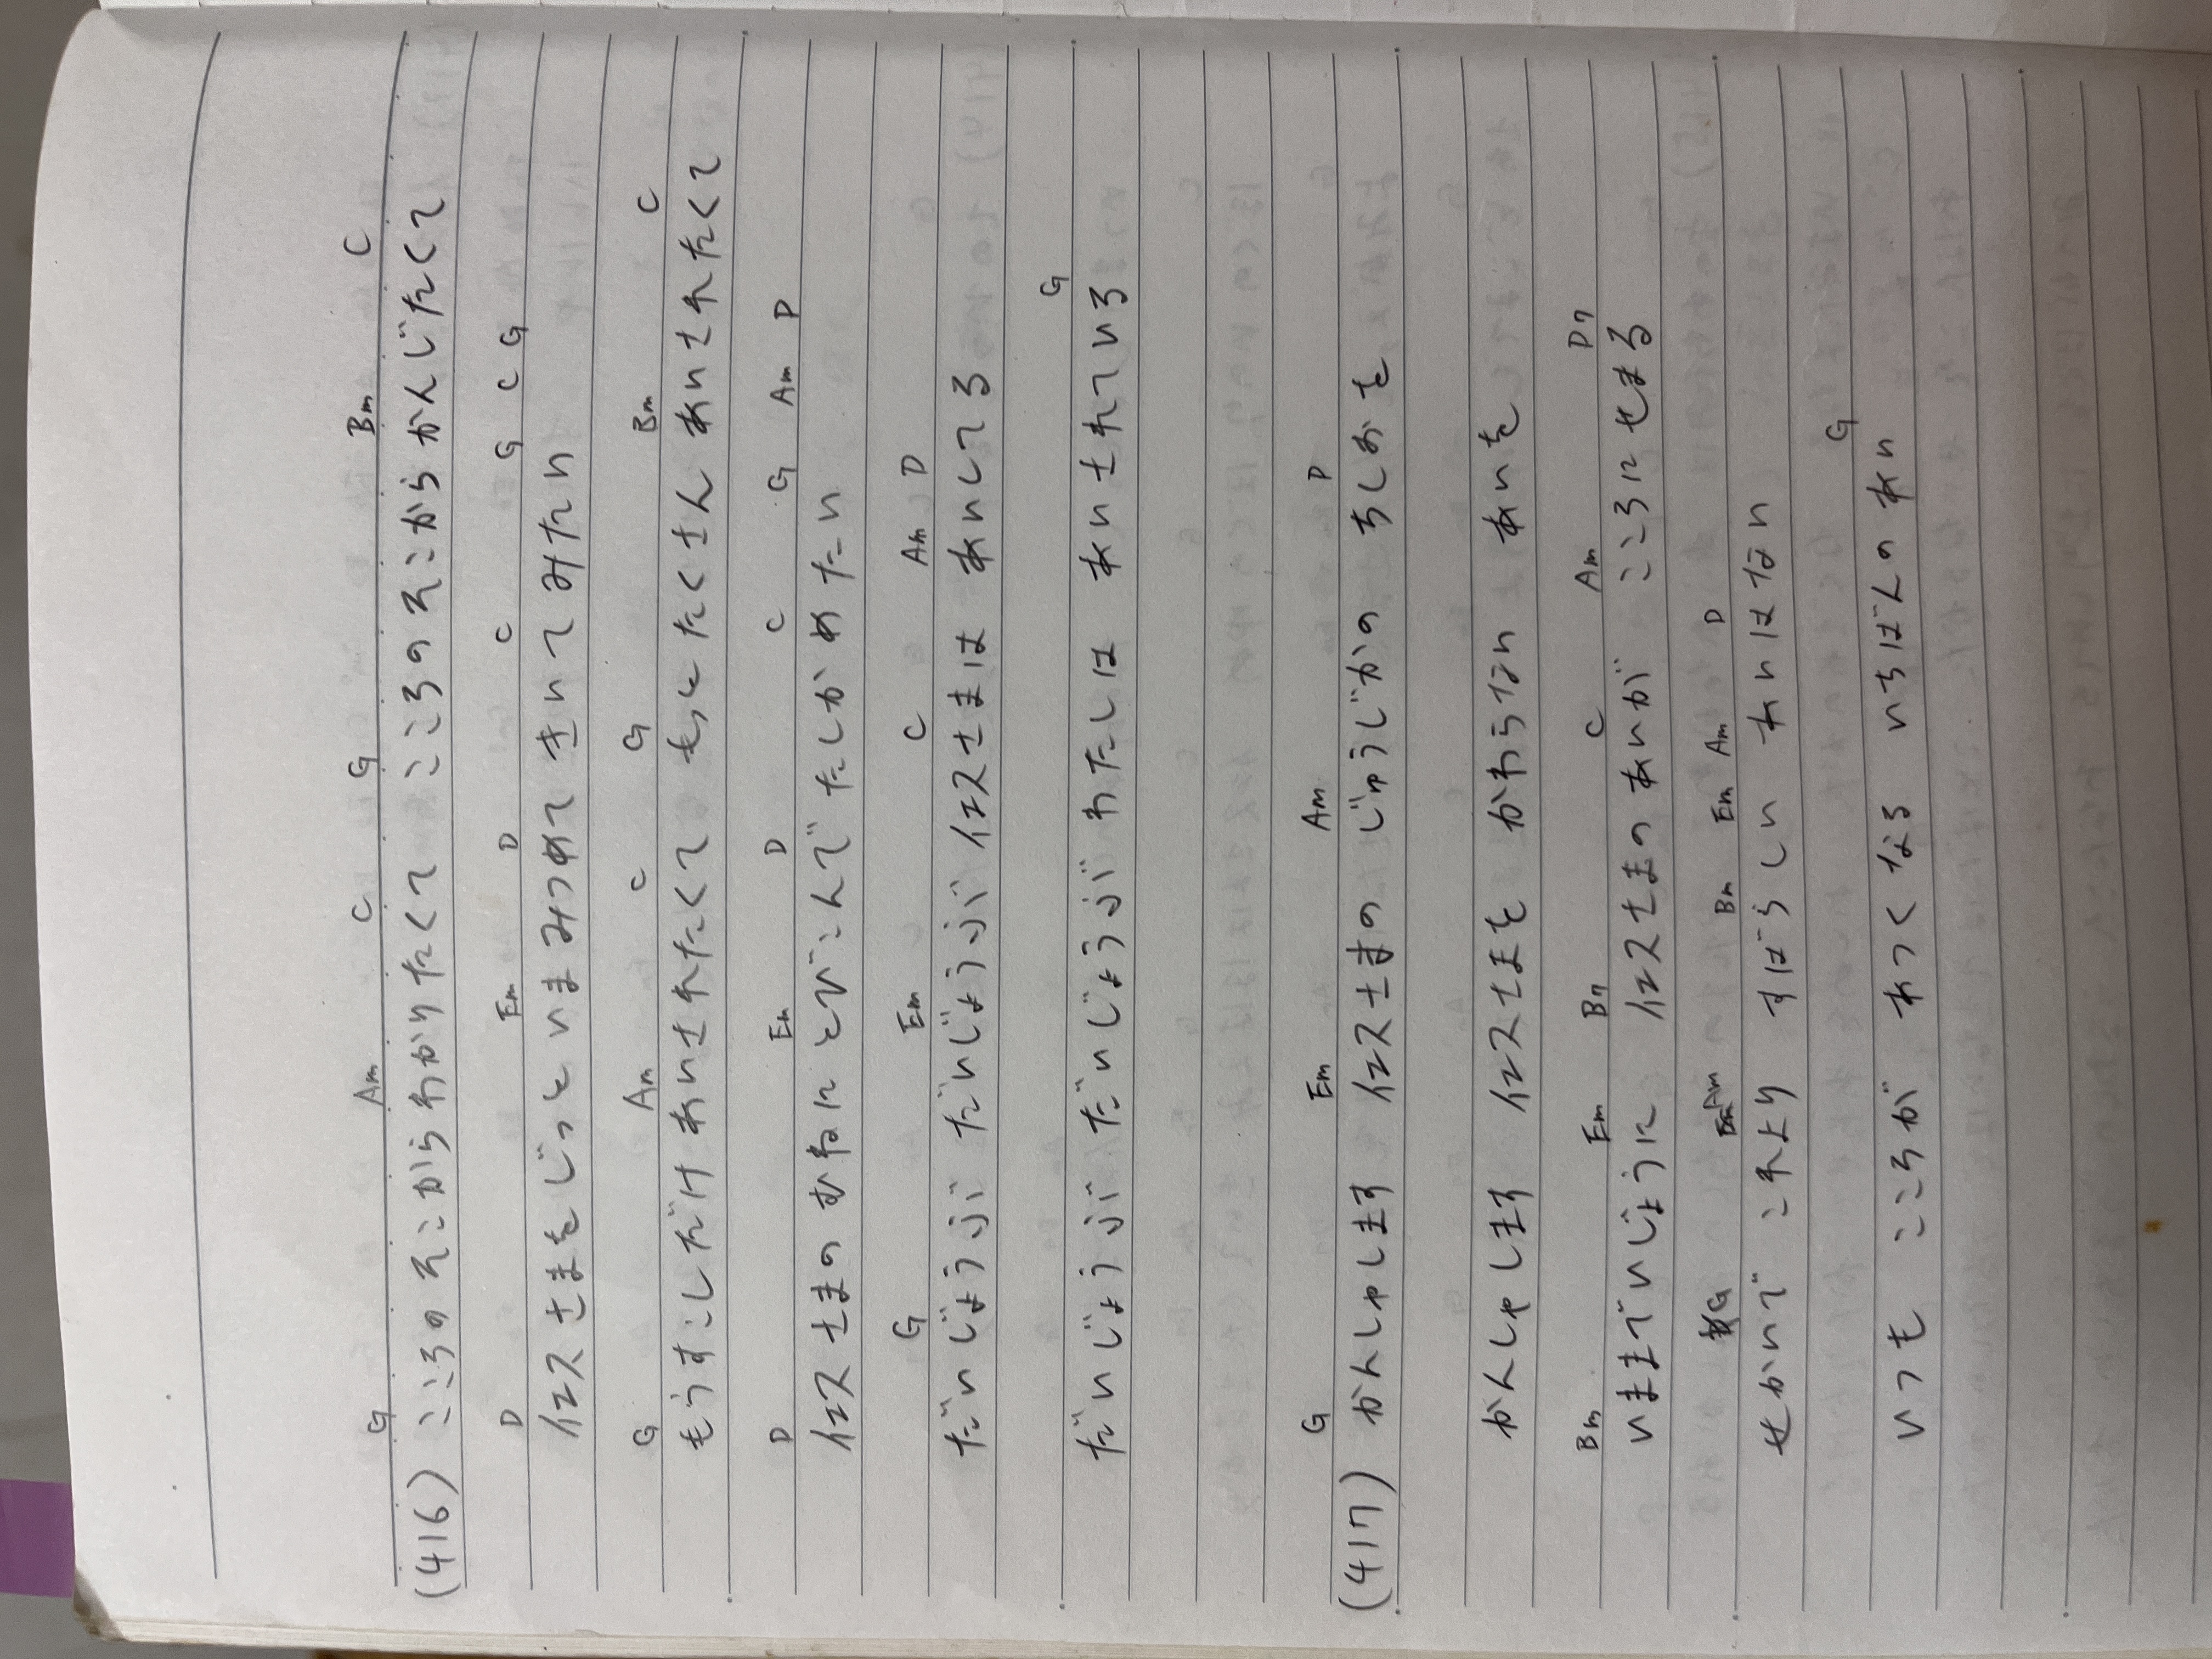 G Am C G Bm C
(416) こころのそこからわかりたくて こころのそこからかんじたくて
D Em D C G C G
イエスさまをじっと いまみつめて きいてみたい
G Am C G Bm C
もうすこしだけ あいされたくて もっとたくさん あいされたくて
D Em D C G Am D
イエスさまの むねに とびこんで たしかめたい
G Em C Am D
だいじょうぶ だいじょうぶ イエスさまは あいしてる
G
だいじょうぶ だいじょうぶ わたしは あいされている
G Em Am D
(417) かんしゃします イエスさまの じゅうじかの ちしおを
かんしゃします イエスさまを かわらない あいを
Bm Em B7 C Am D7
いままでいじょうに イエスさまのあいが こころにせまる
G Am Bm Em Am D
せかいで これより すばらしい あいはない
G
いつも こころが あつくなる いちばんのあい